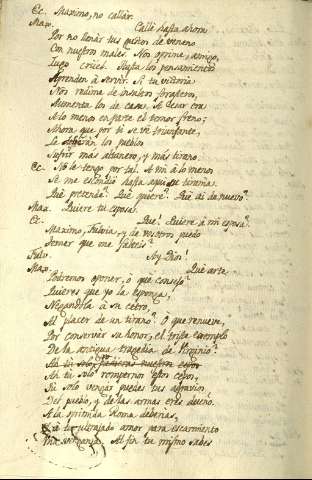 Ec. Maximo, no callar.
Max. Callé hasta ahora
Por no llenár tus gustos de veneno
Con nuestros males. Nos oprime, amigo,
Iugo cruel. Hasta los pensamientos
Aprenden à servir. Si tu victoria
Nos redime de insultos forasteros,
Aumenta los de casa. A Cesar era
A lo menos en parte el temor freno;
Ahora que por ti se vé triunfante,
Le los pueblos
Sufrir más altanero, y más tirano.
Ec. No le tengo por tal. A mi à lo menos
Se me escondió hasta aqui su tirania.
Què pretende? Què quiere? Què ai de nuevo?
Max. Quiere tu esposa.
Ec. Què! Quiere à mi esposa?
Maximo, Fulvia, y de vosotros puedo
Temer que me faltéis?
Fulv. Ay Dios!
Max. Què arte,
Podremos oponer, ò que consejo?
Quieres que yo la esponga,
Negandola à su cetro,
Al placer de un tirano? O que renueve,
Por conservar su honor, el triste exemplo
De la antigua tragedia de Virginio?
Ah tu solo
Ah tu solo romper nos estos cepos,
Tu solo vengar puedes tus agravios,
Del pueblo, y de las armas eres dueño.
A la oprimida Roma deberias,
tu ultrajado amor para escarmiento
venganza. Al fin tu mismo sabes